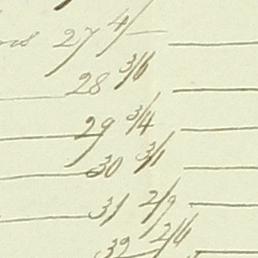 27 4/-
28 3/6
29 3/4
30 3/1
31 2/9
32 2/4